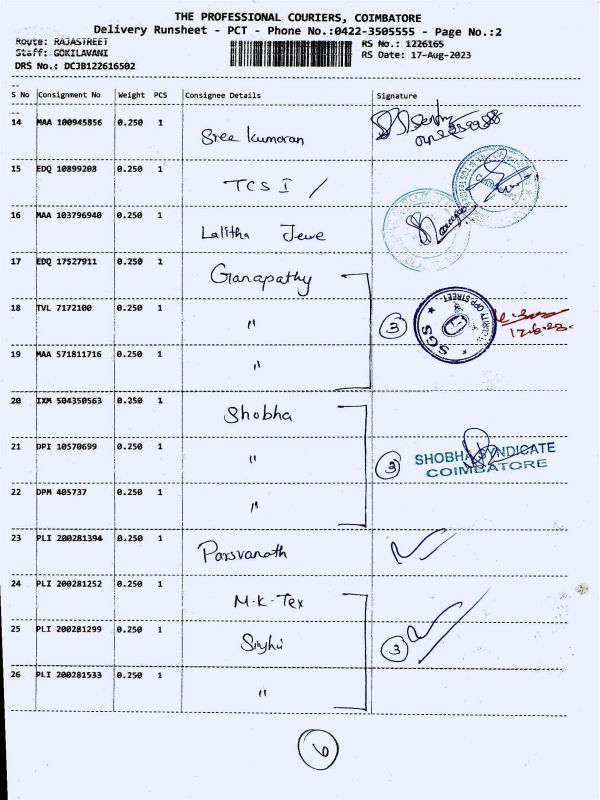 THE PROFESSIONAL COURIERS, COIMBATORE
Delivery Runsheet - PCT - Phone No.:0422-3505555 - Page No.:2
Route: RAJASTREET RS No.: 1226165
Staff: GOKILAVANI RS Date: 17-Aug-2023
DRS No.: DCJB122616502
S No Consignment No Weight PCS Consignee Details Signature
14 MAA 100945856 0.250 1 Sree Kumaran
15 EDQ 10899208 0.250 1 TCS I /
16 MAA 103796940 0.250 1 Lalitha Jewe
17 EDQ 17527911 0.250 1 Ganapathy
18 TVL 7172100 0.250 1 " 3 SGS
19 MAA 571811716 0.250 1 "
20 IXM 504350563 0.250 1 Shobha
21 DPI 10570699 0.250 1 " 3 SHOBHA SYNDICATE
COIMBATORE
22 DPM 405737 0.250 1 "
23 PLI 200281394 0.250 1 Parsvanath
24 PLI 200281252 0.250 1 M.K.Tex
25 PLI 200281299 0.250 1 3
26 PLI 200281533 0.250 1 "
6